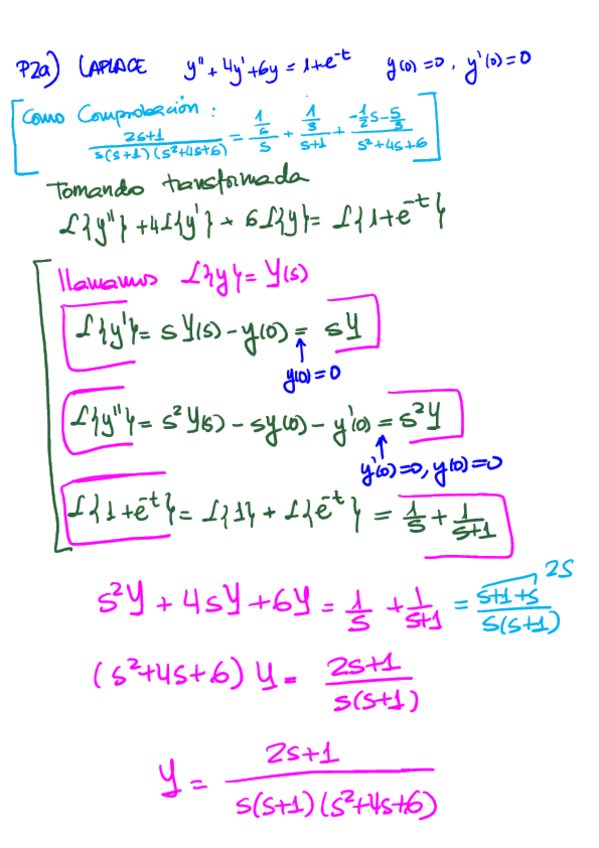 P2a) LAPLACE y''+4y'+6y = 1+e^{-t} y(0)=0, y'(0)=0
[Como Comprobación: \frac{2s+1}{s(s+1)(s^2+4s+6)} = \frac{\frac{1}{6}}{s} + \frac{\frac{1}{3}}{s+1} + \frac{-\frac{1}{2}s-\frac{5}{3}}{s^2+4s+6}]
Tomando transformada
ℒ{y''}+4ℒ{y'}+6ℒ{y}=ℒ{1+e^{-t}}
llamamos ℒ{y}=Y(s)
ℒ{y'}= sY(s)-y(0) = sY
y(0)=0
ℒ{y''}= s^2Y(s)-sy(0)-y'(0) = s^2Y
y'(0)=0, y(0)=0
ℒ{1+e^{-t}}=ℒ{1}+ℒ{e^{-t}} = \frac{1}{s}+\frac{1}{s+1}
2s
s^2Y+4sY+6Y = \frac{1}{s} + \frac{1}{s+1} = \frac{s+1+s}{s(s+1)}
(s^2+4s+6) Y = \frac{2s+1}{s(s+1)}
Y = \frac{2s+1}{s(s+1)(s^2+4s+6)}